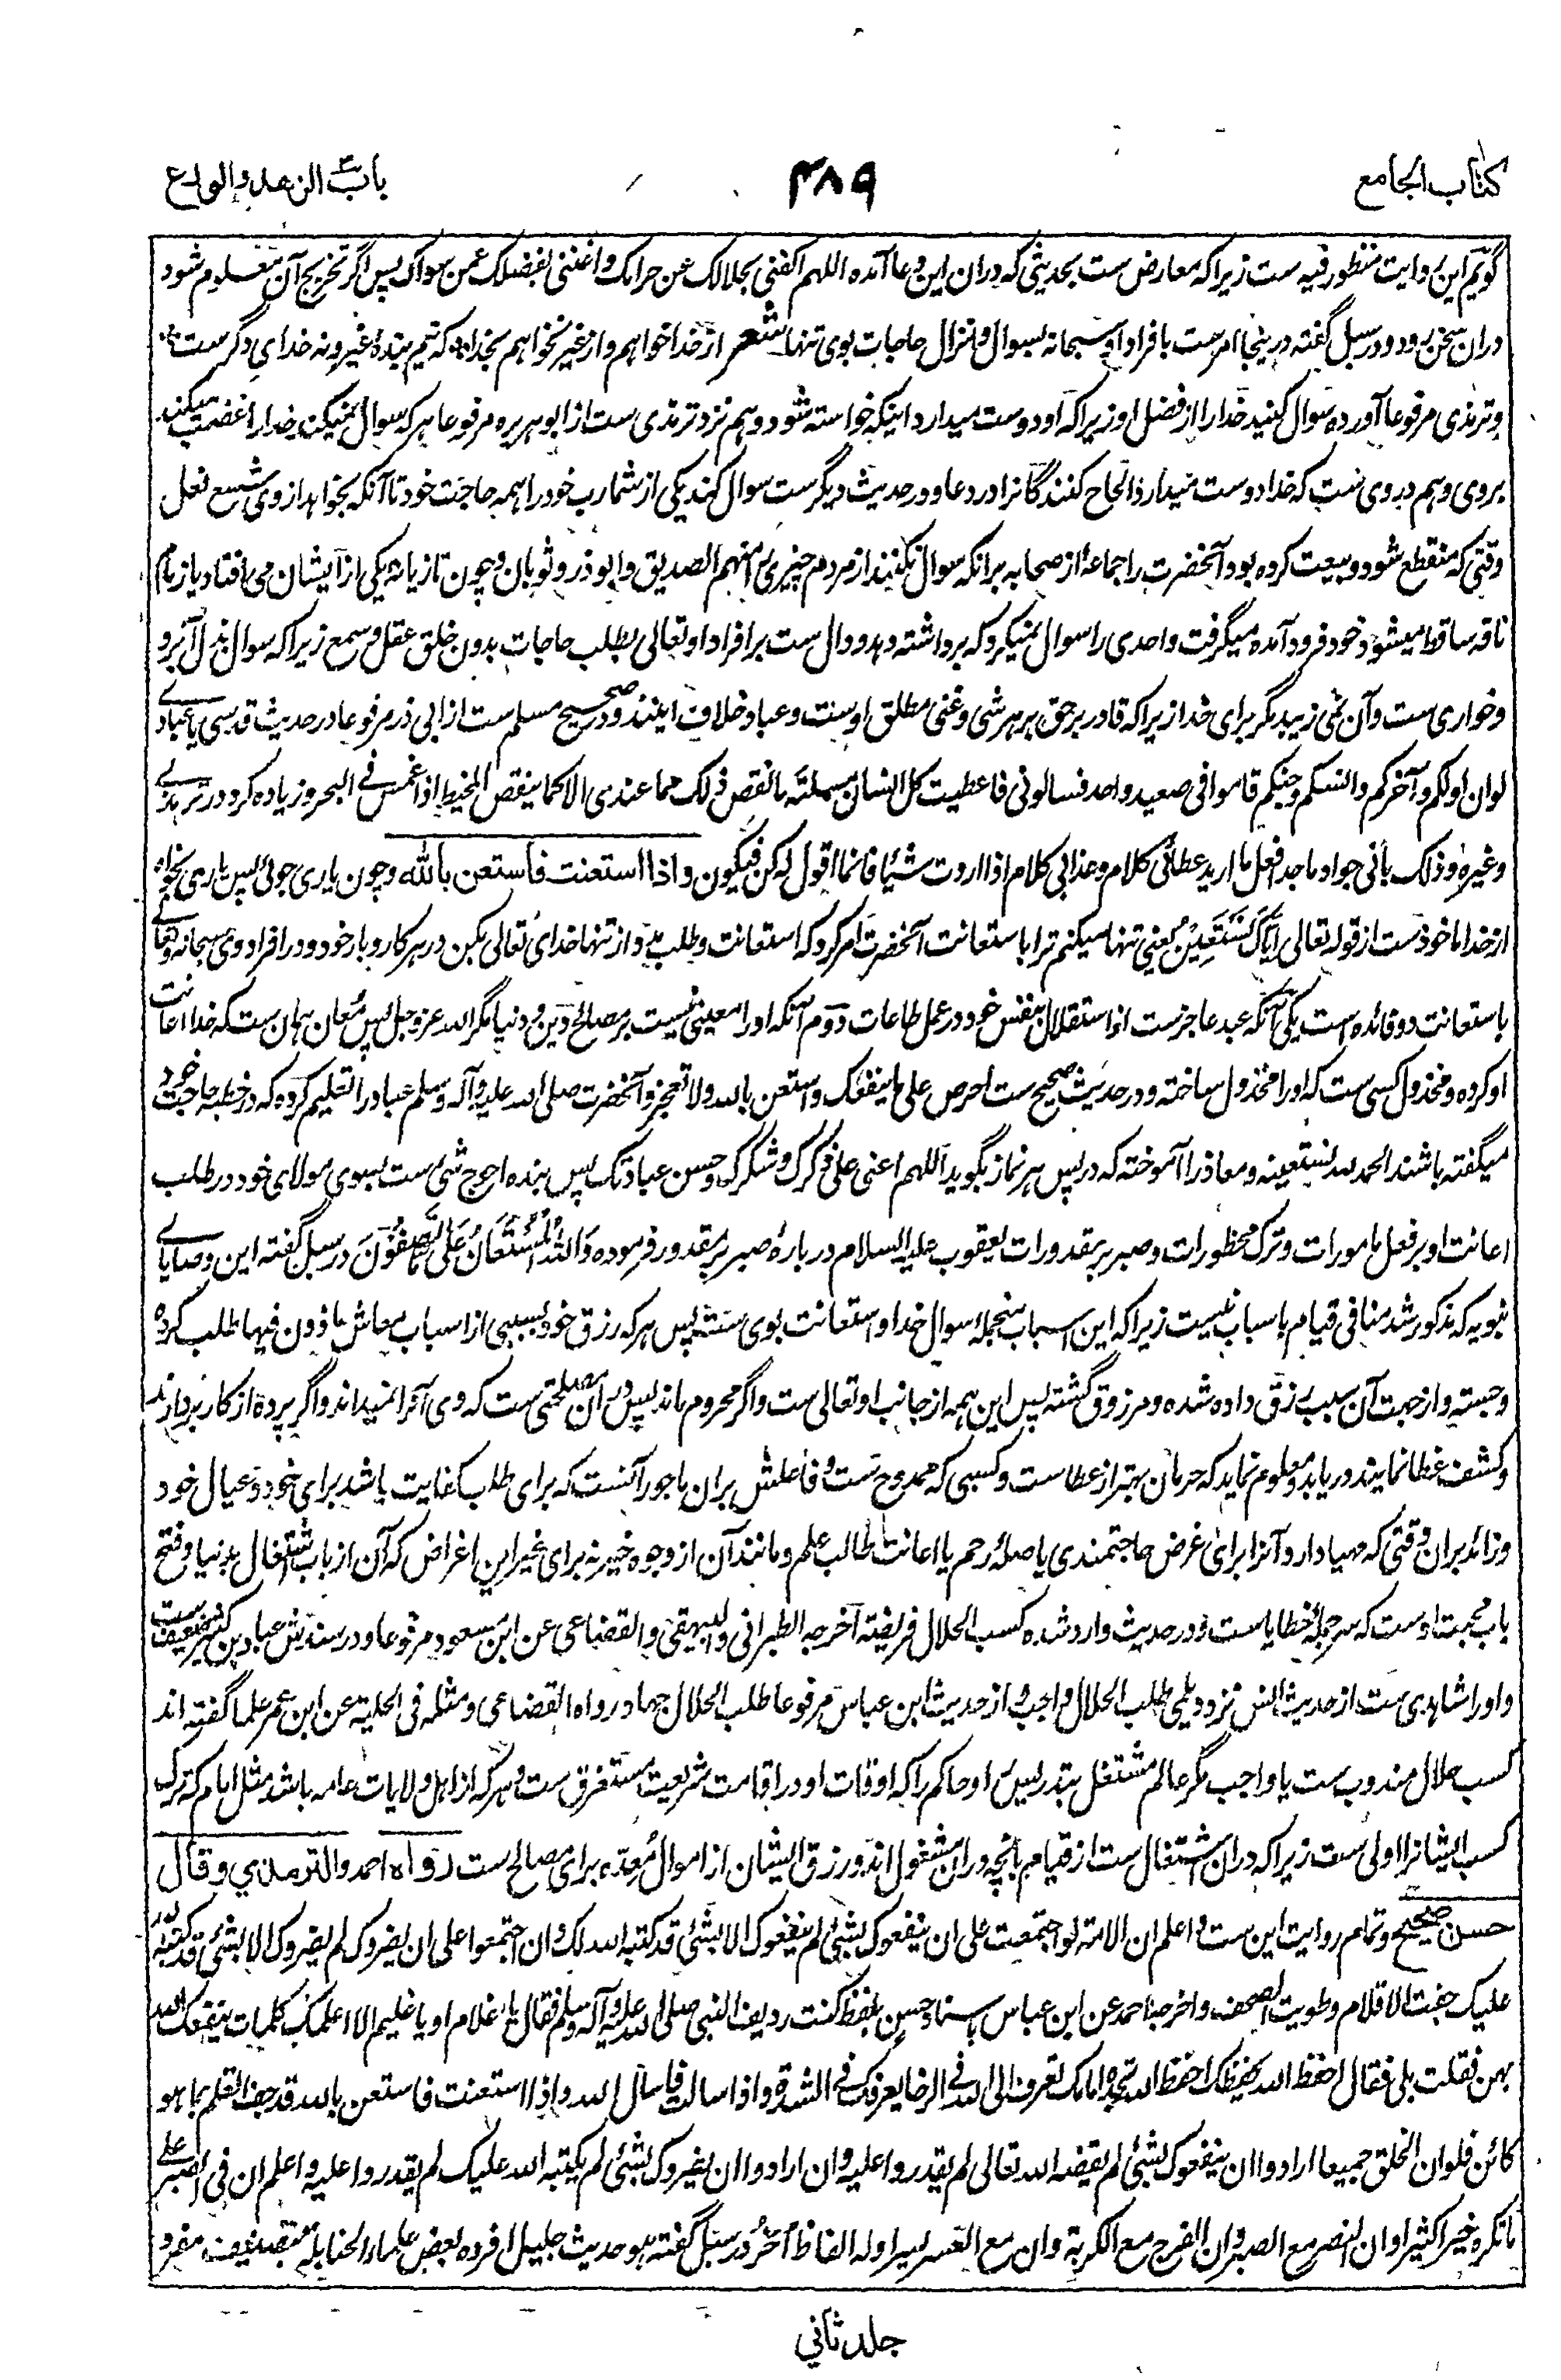 کتاب الجامع
۴۸۹
باب الزهد والورع
گویم این روایت منظور فیه ست زیرا که معارض ست بحدیثی که دران این دعا آمده اللهم اکفنی بحلالک عن حرامک واغننی بفضلک عمن سواک پس اگر تخریج آن معلوم شود
دران سخن رود ودر سبل گفته درینجا امرست بافراد او سبحانه بسوال وانزال حاجات بوی تنها شعر از خدا خواهم واز غیر نخواهم بخدا که نیم بنده غیر ونه خدای دگرست
وترمذی مرفوعا آورده سوال کنید خدا را از فضل او زیرا که او دوست میدارد اینکه خواسته شود وهم نزد ترمذی ست از ابو هریره مرفوعا هرکه سوال نمیکند خدا را غضب میکند
بروی وهم دروی ست که خدا دوست میدارد الحاح کنندگانرا در دعا ودر حدیث دیگرست سوال کند یکی از شما رب خود را همه حاجت خود تا آنکه بخواهد از وی شسع نعل
وقتی که منقطع شود وبیعت کرده بود آنحضرت را جماعه از صحابه برانکه سوال نکنند از مردم چیزی را منهم الصدیق وابو ذر وثوبان وچون تازیانه یکی از ایشان می افتاد یا زمام
ناقه ساقط میشود خود فرود آمده میگرفت واحدی را سوال نمیکرد که برداشته دهد ودال ست بر افراد او تعالی بطلب حاجات بدون خلق عقل وسمع زیرا که سوال بذل آبرو
وخواری ست وآن نمی زیبد مگر برای خدا زیرا که قادر برحق بر هر شی وغنی مطلق اوست وعباد خلاف اینند ودر صحیح مسلم ست از ابی ذر مرفوعا در حدیث قدسی یا عبادی
لو ان اولکم وآخرکم وانسکم وجنکم قاموا فی صعید واحد فسالونی فاعطیت کل انسان مسئلته ما نقص ذلک مما عندی الا کما ینقص المخیط اذا غمس فی البحر وزیاده کرد در ترمذی
وغیره وذلک بأنی جواد ماجد افعل ما ارید عطائی کلام وعذابی کلام اذا اردت شیئا فانما اقول له کن فیکون واذا استعنت فاستعن بالله وچون یاری جوئی پس یاری بخواه
از خدا ماخوذ ست از قوله تعالی ایاک نستعین یعنی تنها میکنم ترا باستعانت آنحضرت امر کرد که استعانت وطلب مدد از تنها خدای تعالی بکن در هر کار وبار خود ودر افراد وی سبحانه وتعالی
باستعانت دو فائده است یکی آنکه عبد عاجزست از استقلال بنفس خود در عمل طاعات دوم آنکه او را معینی نیست بر مصالح دین ودنیا مگر الله عز وجل پس مُعان همان ست که خدا اعانت
او کرده ومخذول کسی ست که او را مخذول ساخته ودر حدیث صحیح ست احرص علی ما ینفعک واستعن بالله ولا تعجز وآنحضرت صلی الله علیه وآله وسلم عباد را تعلیم کرده که در خطبه حاجت خود
میگفته باشند الحمد لله نستعینه ومعاذ را آموخته که در پس هر نماز بگوید اللهم اعنی علی ذکرک وشکرک وحسن عبادتک پس بنده احوج شی ست بسوی مولای خود در طلب
اعانت او بر فعل مامورات وترک محظورات وصبر بر مقدورات یعقوب علیه السلام درباره صبر بر مقدور فرموده وَاللهُ الْمُسْتَعَانُ عَلَى مَا تَصِفُونَ در سبل گفته این وصایای
نبویه که مذکور شد منافی قیام باسباب نیست زیرا که این اسباب منجمله سوال خدا واستعانت بوی ست پس هرکه رزق خود بسببی از اسباب معاش ماذون فیها طلب کرده
وجسته واز جهت آن سبب رزق داده شده ومرزوق گشته پس این همه از جانب او تعالی ست واگر محروم ماند پس دران مصلحتی ست که وی آنرا نمیداند واگر پرده از کار بردارند
وکشف غطا نمایند دریابد ومعلوم نماید که حرمان بهتر از عطاست وکسبی که ممدوح ست وفاعلش بران ماجور آنست که برای طلب کفایت باشد برای خود وعیال خود
وزائد بران وقتی که مهیا دارد آنرا برای غرض حاجتمندی یا صلهٔ رحم یا اعانت طالب علم ومانند آن از وجوه خیر نه برای غیر این اغراض که آن از باب اشتغال بدنیا وفتح
باب محبت اوست که سر جملهٔ خطایاست ودر حدیث وارد شده کسب الحلال فریضة اخرجه الطبرانی والبیهقی والقضاعی عن ابن مسعود مرفوعا ودر سندش عباد بن کثیر ضعیف ست
واو را شاهدی ست از حدیث انس نزد دیلمی طلب الحلال واجب واز حدیث ابن عباس مرفوعا طلب الحلال جهاد رواه القضاعی ومثله فی الحلیة عن ابن عمر علما گفته اند
کسب حلال مندوب ست یا واجب مگر عالم مشتغل بتدریس او حاکم را که اوقات او در اقامت شریعت مستغرق ست وهرکه از اهل ولایات عامه باشد مثل امام که ترک
کسب ایشانرا اولی ست زیرا که دران اشتغال ست از قیام بانچه دران مشغول اند ورزق ایشان از اموال مُعدّه برای مصالح ست رواه احمد والترمذي وقال
حسن صحیح وتمام روایت این ست واعلم ان الامة لو اجتمعت علی ان ینفعوک بشئ لم ینفعوک الا بشئ قد کتبه الله لک وان اجتمعوا علی ان یضروک لم یضروک الا بشئ قد کتبه الله
علیک جفت الاقلام وطویت الصحف واخرجه احمد عن ابن عباس باسناد حسن بلفظ کنت ردیف النبی صلی الله علیه وآله وسلم فقال یا غلام او یا غلیم الا اعلمک کلمات ینفعک الله
بهن فقلت بلی فقال احفظ الله یحفظک احفظ الله تجده امامک تعرف الی الله فی الرخا یعرفک فی الشدة واذا سالت فاسال الله واذا استعنت فاستعن بالله قد جف القلم بما هو
کائن فلو ان الخلق جمیعا ارادوا ان ینفعوک بشئ لم یقضه الله تعالی لم یقدروا علیه وان ارادوا ان یضروک بشئ لم یکتبه الله علیک لم یقدروا علیه واعلم ان فی الصبر علی
ما تکره خیرا کثیرا وان النصر مع الصبر وان الفرج مع الکربة وان مع العسر یسرا وله الفاظ أُخَرُ در سبل گفته هو حدیث جلیل افرده بعض علماء الحنابلة بتصنیف مفرد
جلد ثاني